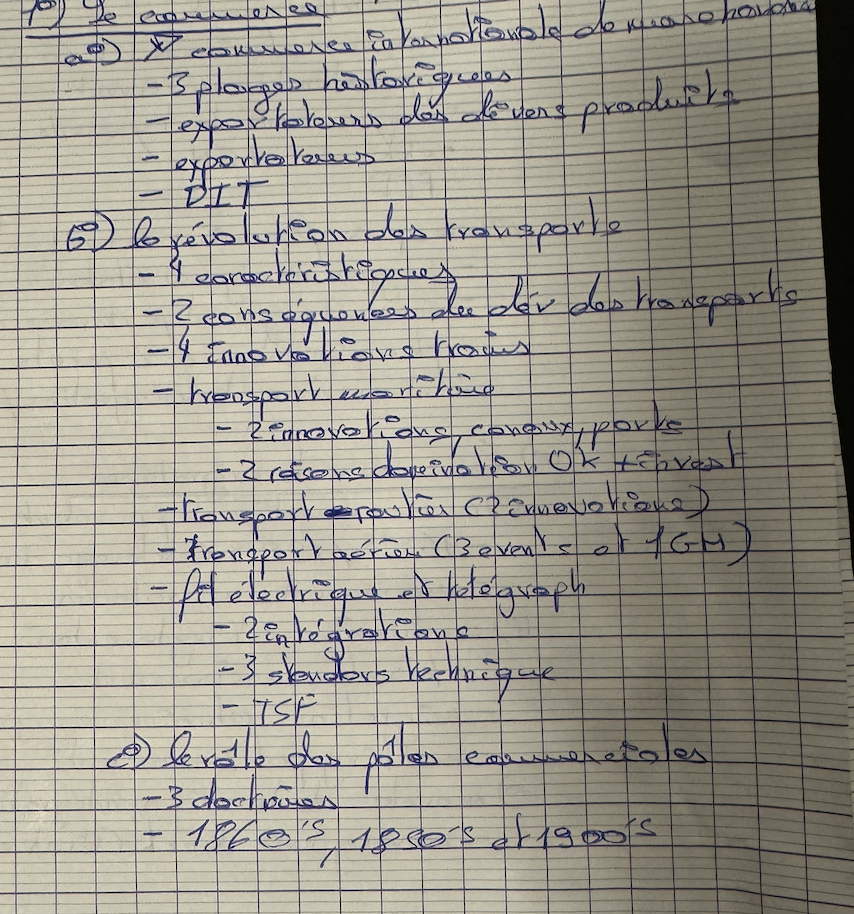 1°) Le commerce
a°) ↗ commerce internationale de marchandi
- 3 plages historiques
- exportateurs des divers produits
- exportateurs
- DIT
b°) la révolution des transports
- 4 caractéristiques
- 2 conséquences du dév des transports
- 4 innovations trains
- transport maritime
- 2 innovations, canaux, ports
- 2 raisons domination UK + invest
- transport routier (2 innovations)
- transport aérien (3 events et 1GM)
- fil électrique et télégraph
- 2 intégrations
- 3 standars technique
- TSF
c°) le rôle des pôles commerciales
- 3 doctrines
- 1860's, 1880's et 1900's